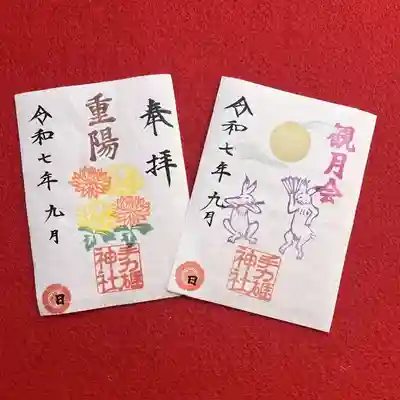 奉拝
重陽
令和七年九月
手力雄神社
日
観月会
令和七年九月
手力雄神社
日